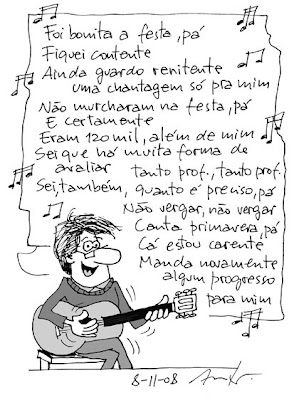 Foi bonita a festa, pá
Fiquei contente
Ainda guardo renitente
uma chantagem só pra mim
Não murcharam na festa, pá
E certamente
Eram 120 mil, além de mim
Sei que há muita forma de
avaliar
tanto prof., tanto prof.
Sei, também, quanto é preciso, pá
Não vergar, não vergar
Canta primavera, pá
Cá estou carente
Manda novamente
algum progresso
para mim
8-11-08